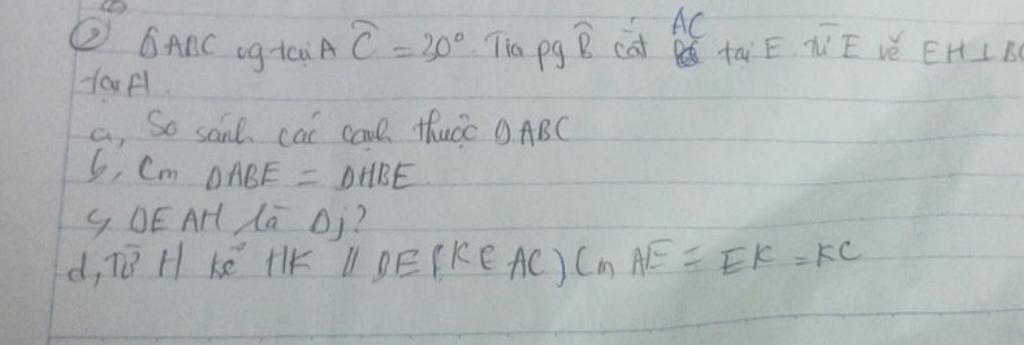 ② ΔABC vg tại A Ĉ = 30° Tia pg B̂ cắt AC tại E từ E vẽ EH⊥BC
tại H.
a, So sánh các cạnh thuộc ΔABC
b, Cm ΔABE = ΔHBE
c, ΔEAH là Δj?
d, Từ H kẻ HK // BE (K∈AC) Cm AE = EK = KC